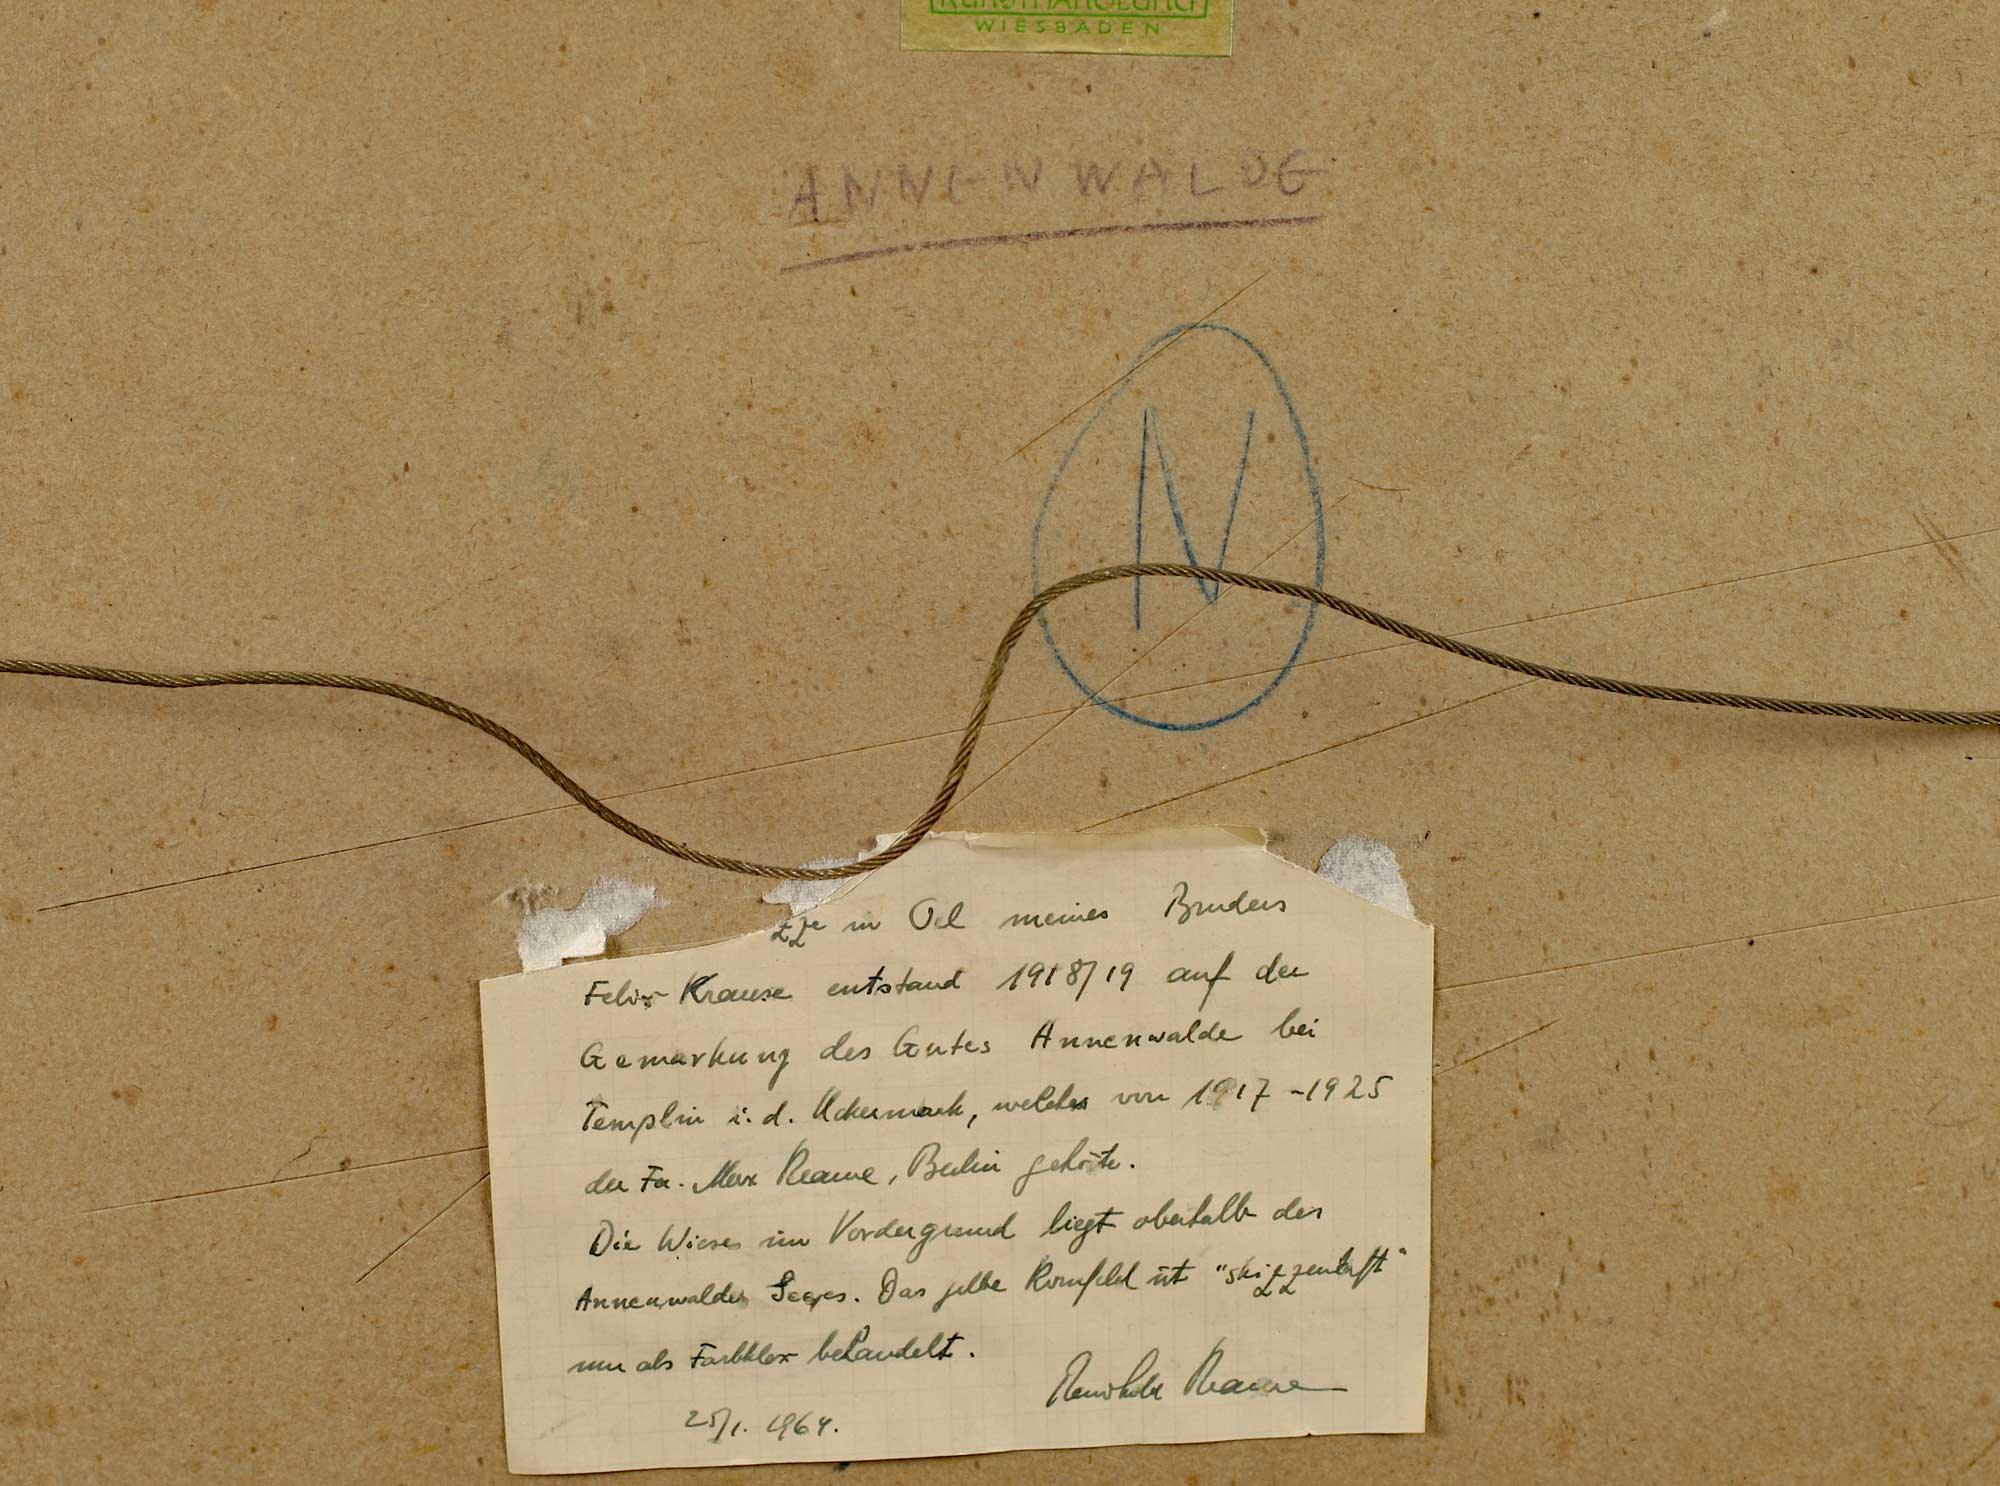 Kunsthandlung
WIESBADEN
ANNENWALDE
N
zze in Oel meines Bruders
Felix Krause entstand 1918/19 auf der
Gemarkung des Gutes Annenwalde bei
Templin i. d. Uckermark, welches von 1917-1925
der Fa. Max Krause, Berlin gehörte.
Die Wiese im Vordergrund liegt oberhalb des
Annenwalder Sees. Das gelbe Kornfeld ist "skizzenhaft"
nur als Farbklex behandelt.
Reinhold Krause
25/1. 1964.